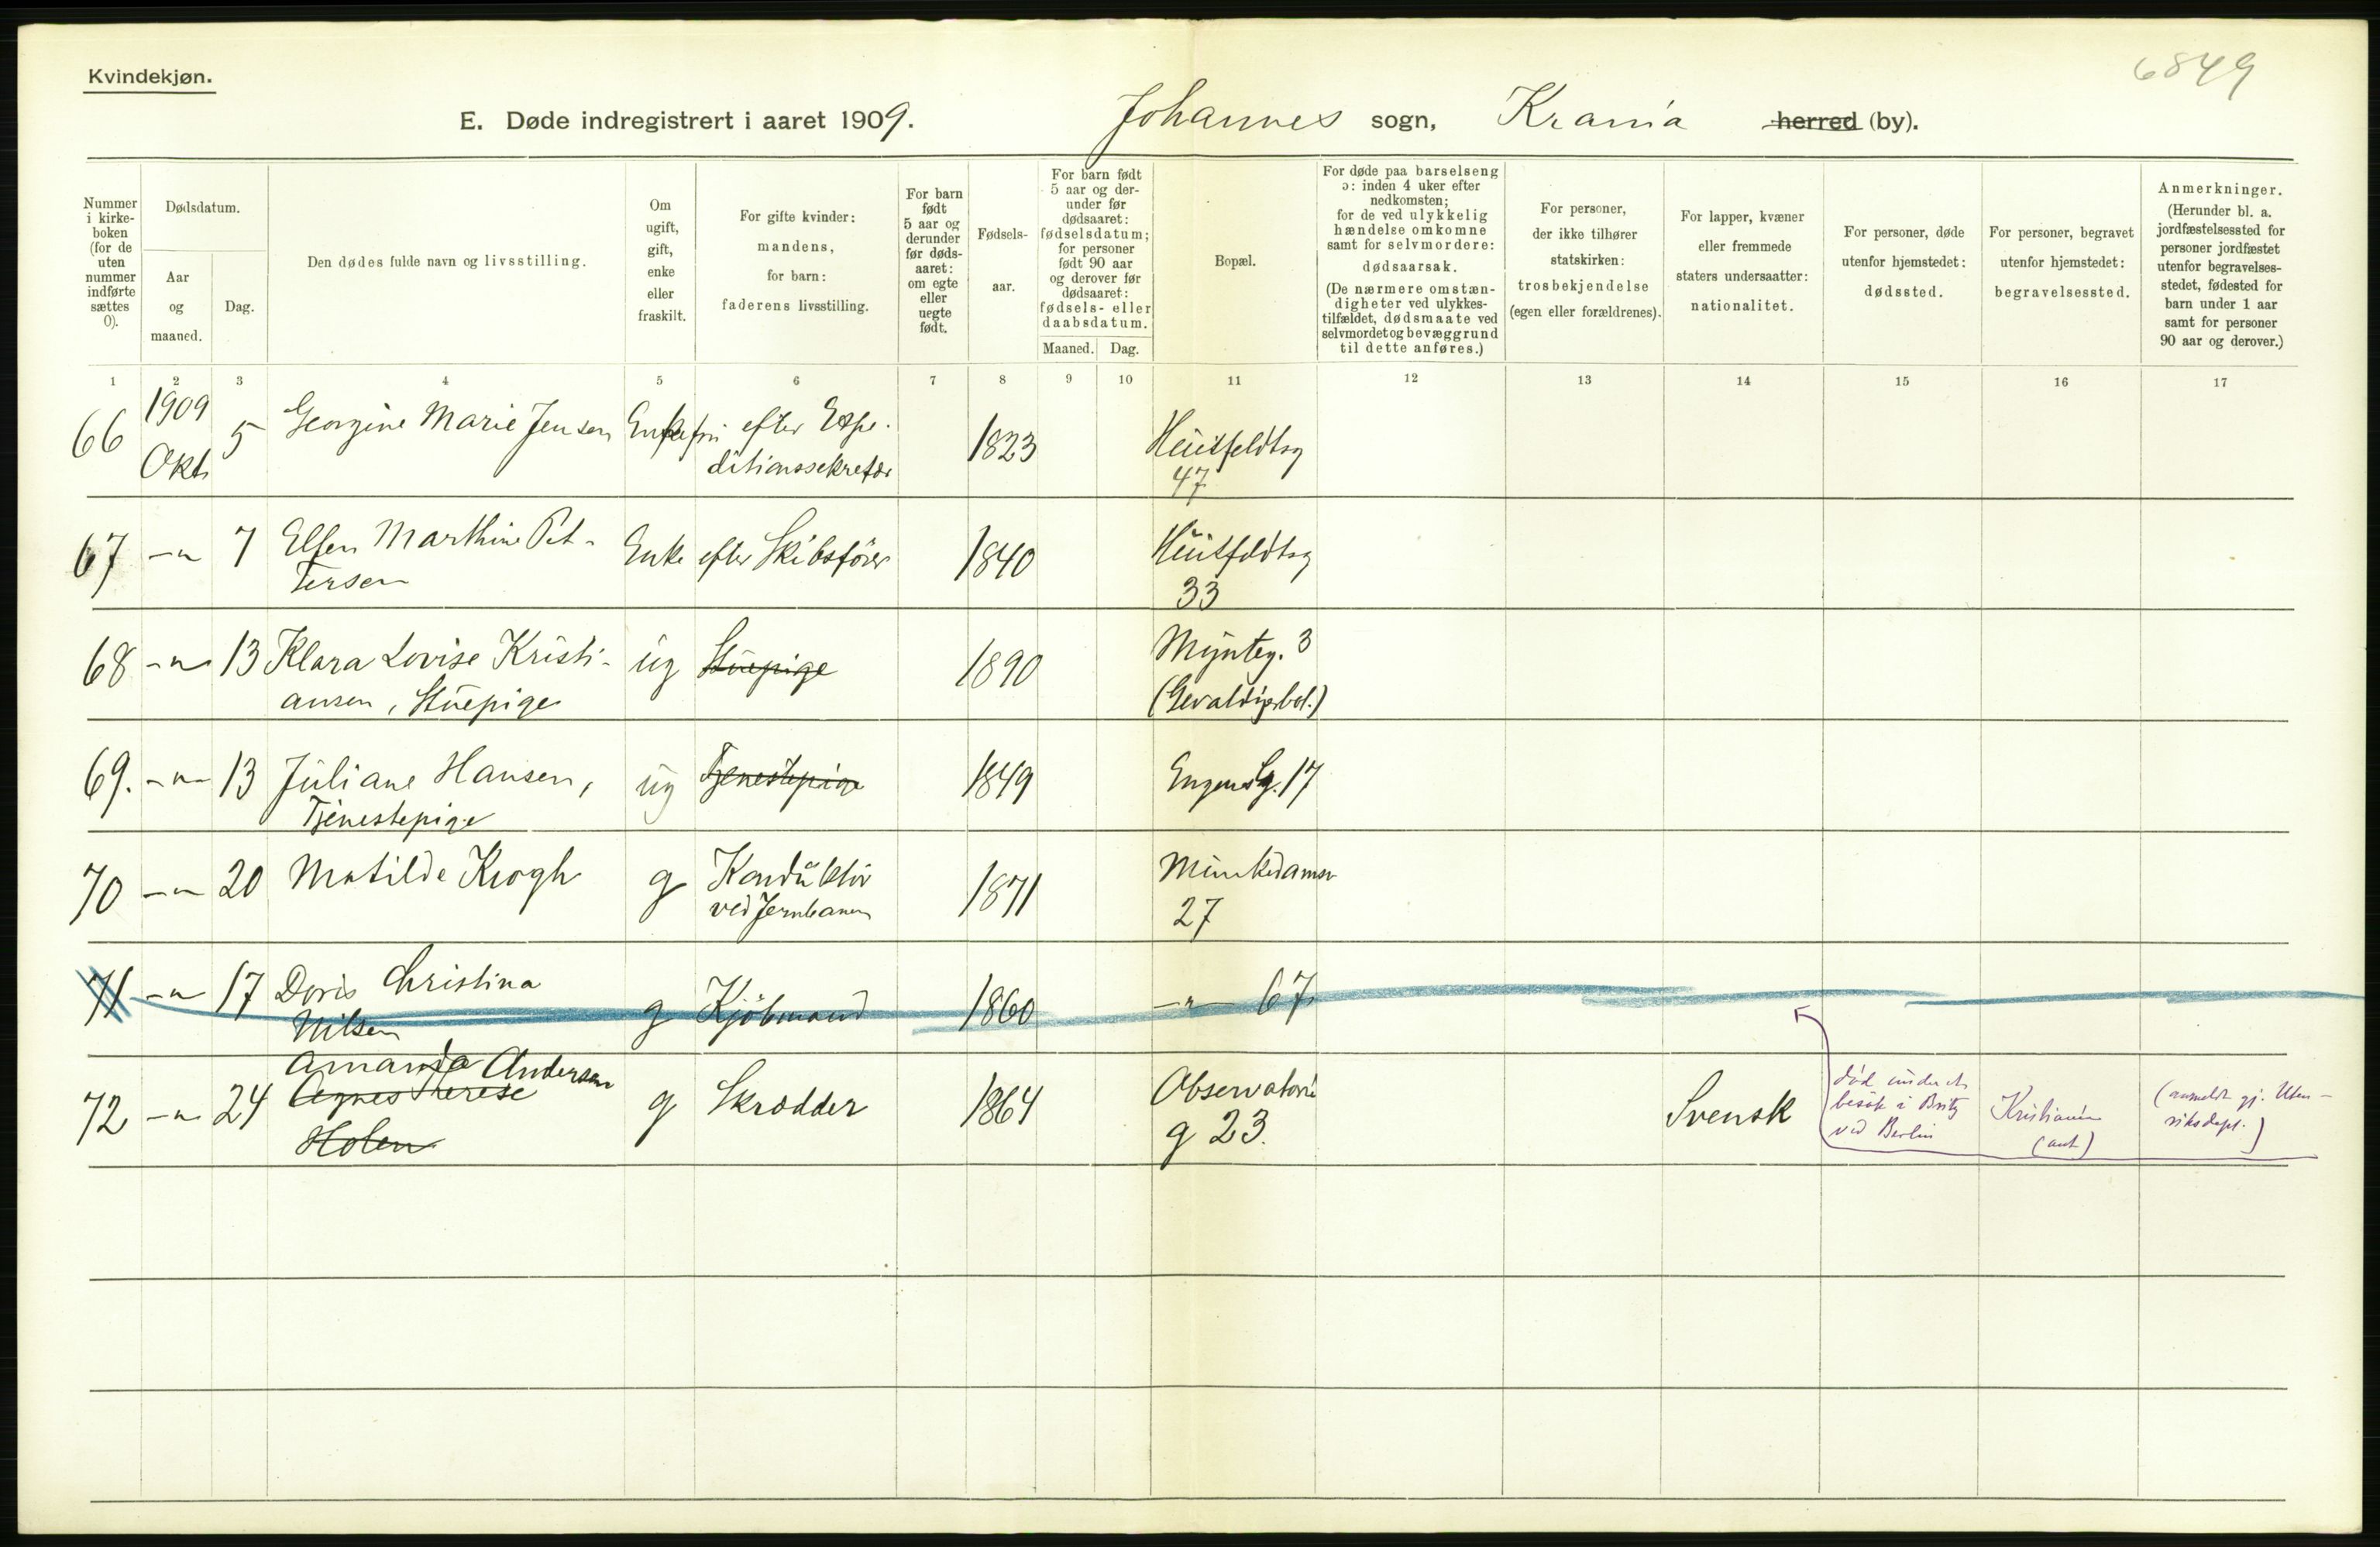 Kvindekjøn.
6849
E. Døde indregistrert i aaret 1909.
Johannes sogn, Krania herred (by).
Nummer i kirke- boken (for de uten nummer indførte sættes 0).
Dødsdatum.
Aar og maaned.
Dag.
Den dødes fulde navn og livsstilling.
Om ugift, gift, enke eller fraskilt.
For gifte kvinder: mandens, for barn: faderens livsstilling.
For barn født 5 aar og derunder før døds- aaret: om egte eller uegte født.
Fødsels- aar.
For barn født 5 aar og der- under før dødsaaret: fødselsdatum; for personer født 90 aar og derover før dødsaaret: fødsels- eller daabsdatum.
Maaned. Dag.
Bopæl.
For døde paa barselseng ɔ: inden 4 uker efter nedkomsten; for de ved ulykkelig hændelse omkomne samt for selvmordere: dødsaarsak. (De nærmere omstæn- digheter ved ulykkes- tilfældet, dødsmaate ved selvmordet og bevæggrund til dette anføres.)
For personer, der ikke tilhører statskirken: trosbekjendelse (egen eller forældrenes).
For lapper, kvæner eller fremmede staters undersaatter: nationalitet.
For personer, døde utenfor hjemstedet: dødssted.
For personer, begravet utenfor hjemstedet: begravelsessted.
Anmerkninger. (Herunder bl. a. jordfæstelsessted for personer jordfæstet utenfor begravelses- stedet, fødested for barn under 1 aar samt for personer 90 aar og derover.)
1 2 3 4 5 6 7 8 9 10 11 12 13 14 15 16 17
66 1909 Okt. 5 Georgine Marie Jensen Enkefru efter Expe- 1823 Huitfeldtsg
ditionssekretær 47
67 -"- 7 Ellen Marthine Pet- Enke efter Skibsfører 1840 Huitfeldtsg
tersen 33
68 -"- 13 Klara Lovise Kristi- ug Stuepige 1890 Myntg. 3
ansen, Stuepige (Gevaldigerbol.)
69. -"- 13 Juliane Hansen, ug Tjenestepige 1849 Engens g. 17
Tjenestepige
70 -"- 20 Matilde Krogh g Konduktør 1871 Munkedamsv
ved Jernbanen 27
71 -"- 17 Doris Christina g Kjøbmand 1860 -"- 67
Nilsen
72 -"- 24 Amanda Andersen g Skrædder 1864 Observatorie Svensk
Agnes Therese g 23.
Holen
død under et
besøk i Britz
ved Berlin
Kristiania
(ant)
(anmeldt gj. Uten-
riksdept.)